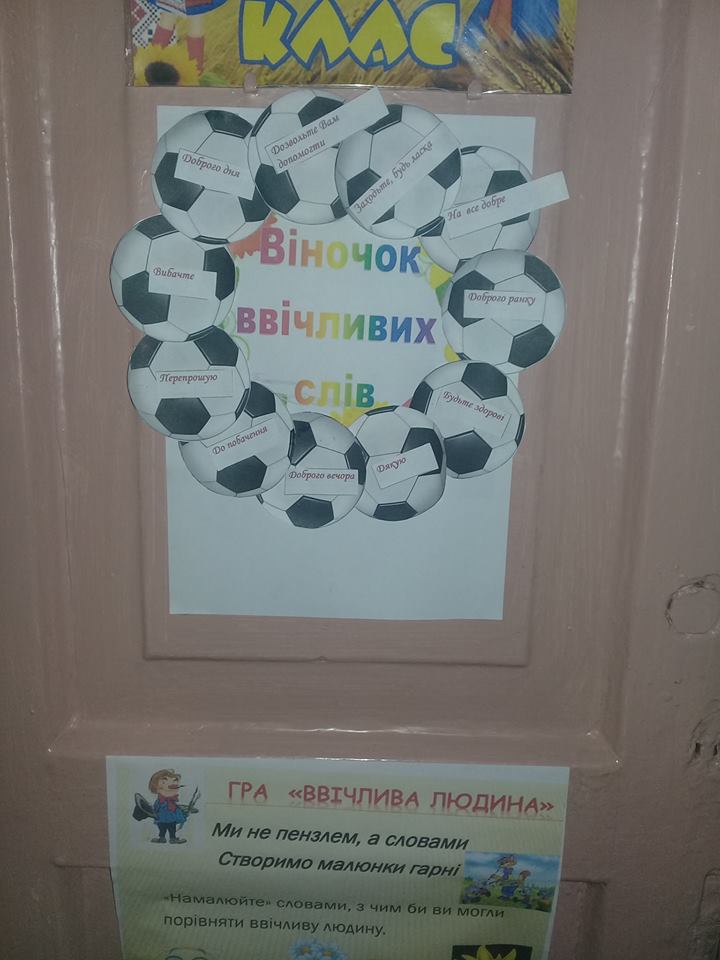 КЛАС
Доброго дня
Дозвольте Вам
допомогти
Заходьте, будь ласка
На все добре
Доброго ранку
Будьте здорові
Дякую
Доброго вечора
До побачення
Перепрошую
Вибачте
Віночок
ввічливих
слів
ГРА «ВВІЧЛИВА ЛЮДИНА»
Ми не пензлем, а словами
Створимо малюнки гарні
«Намалюйте» словами, з чим би ви могли
порівняти ввічливу людину.